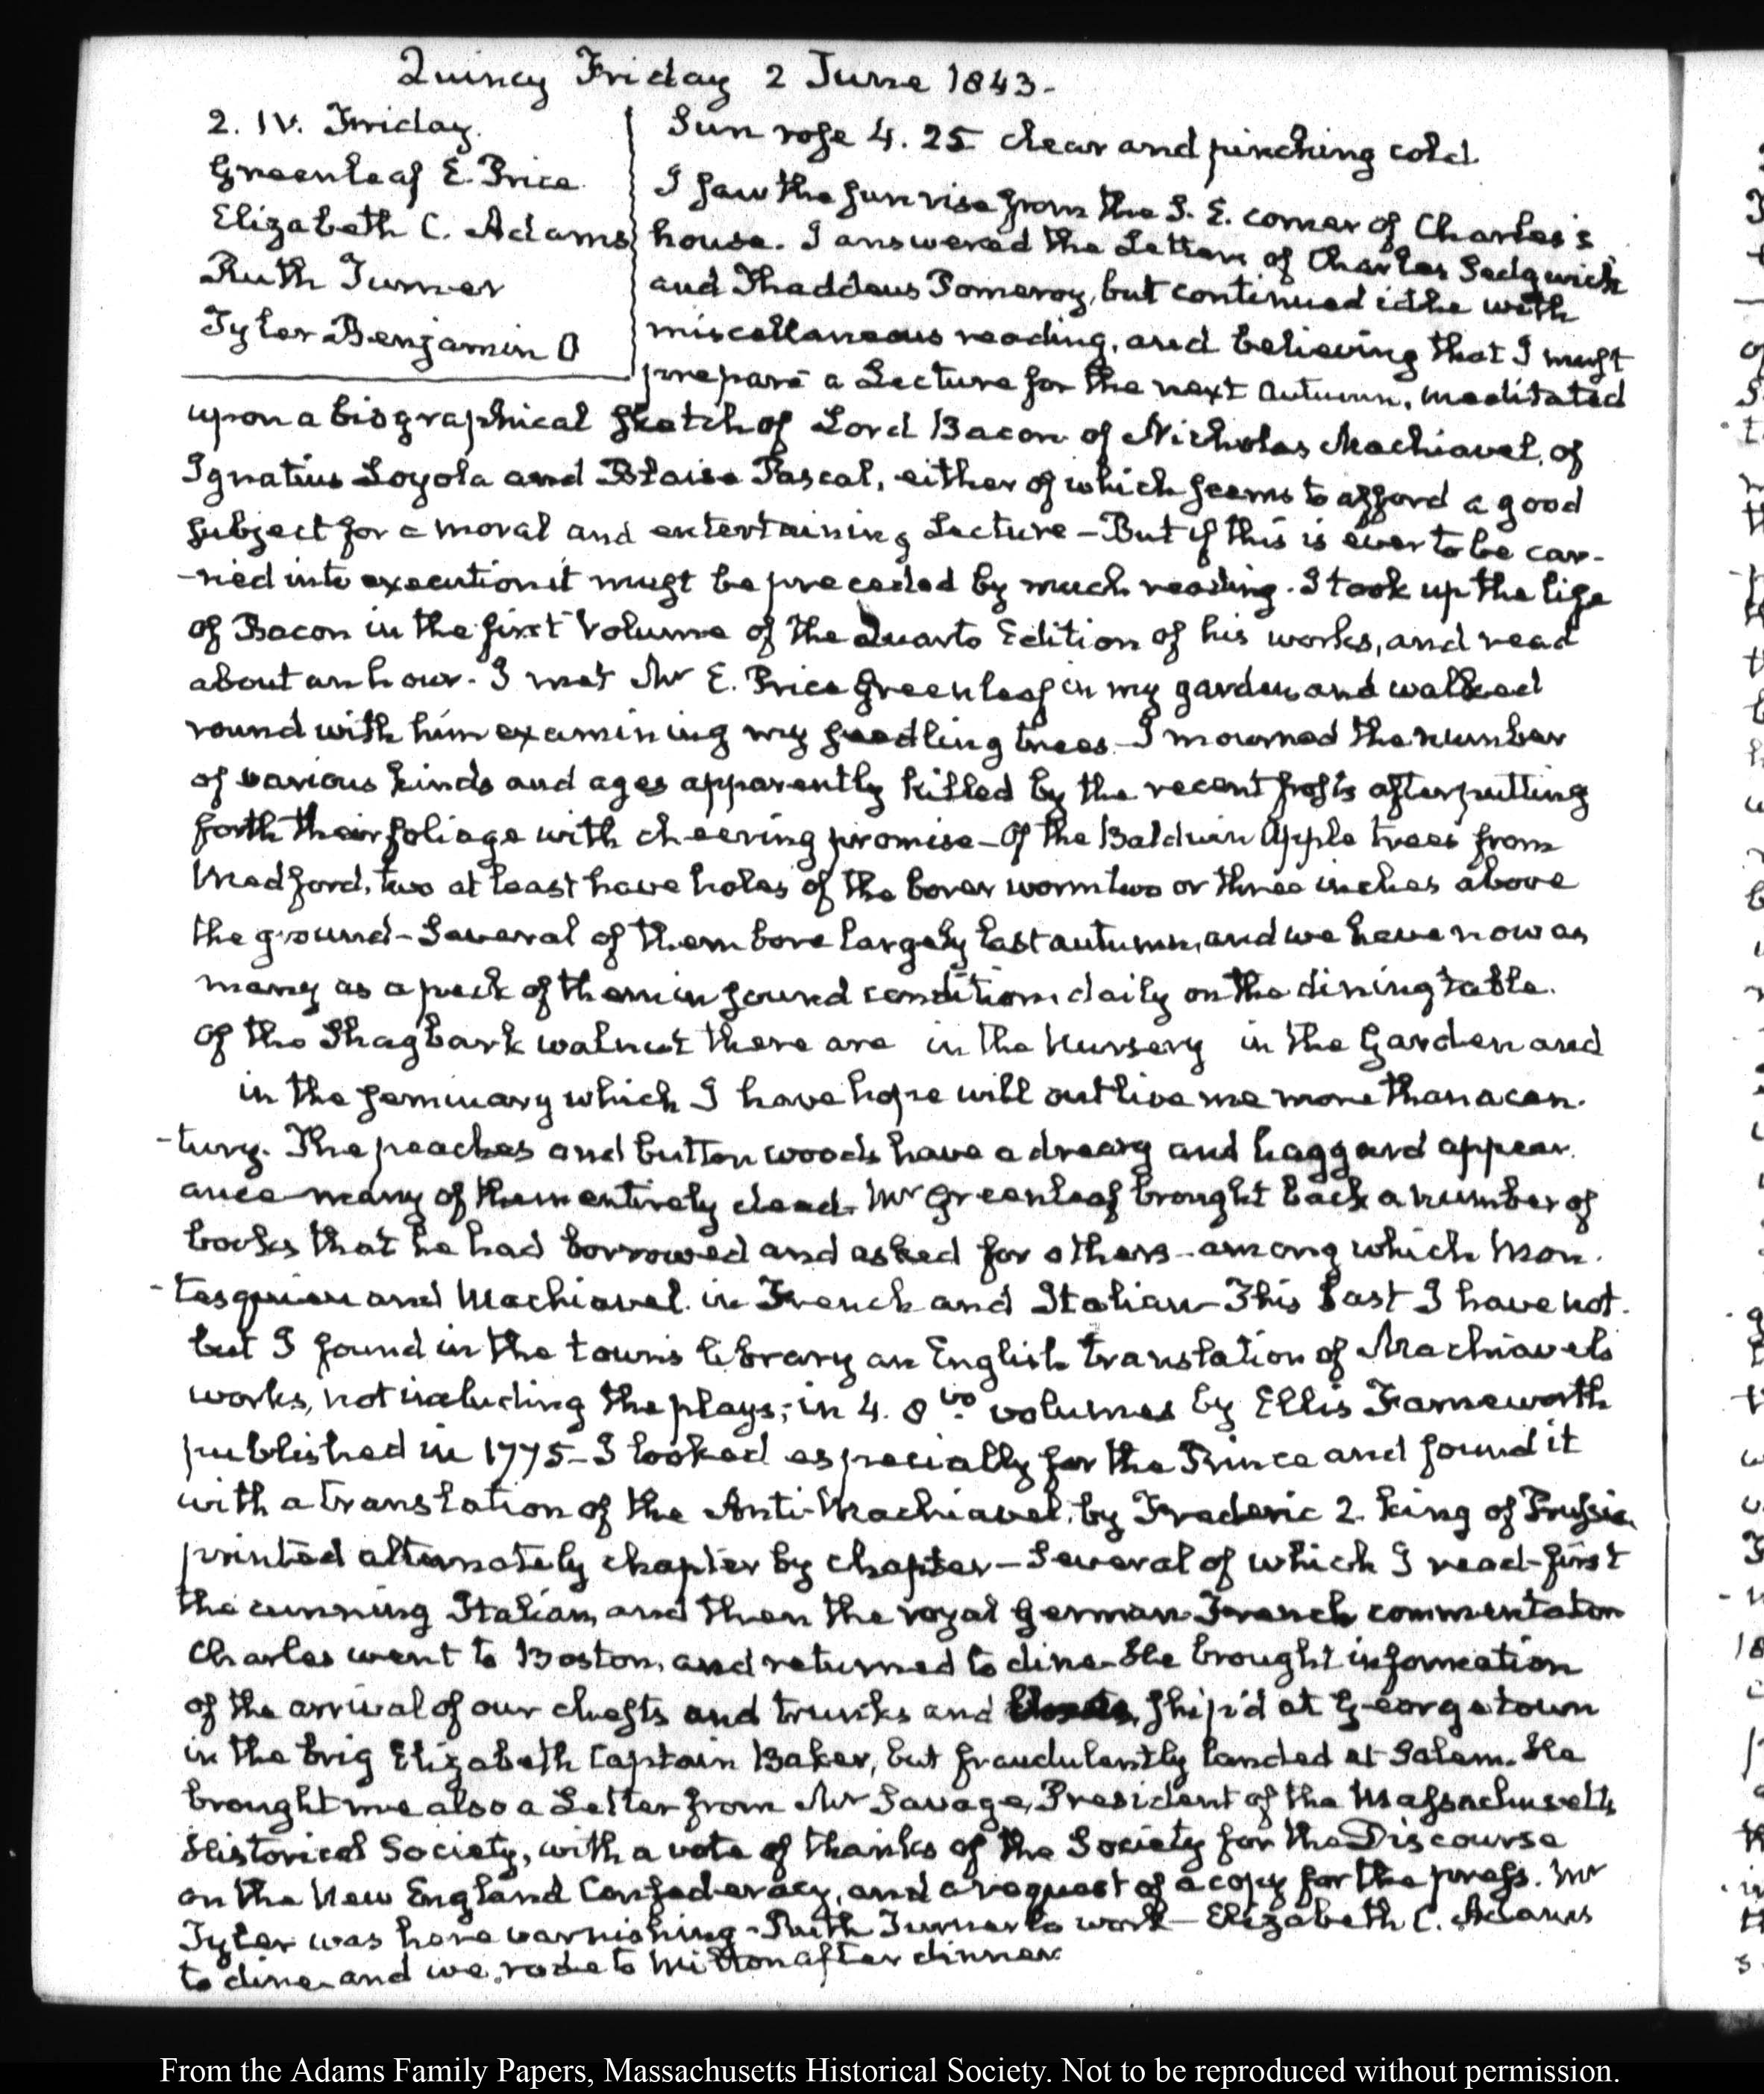 Quincy Friday 2 June 1843.
2. IV. Friday.
Greenleaf E. Price
Elizabeth C. Adams
Ruth Turner
Tyler Benjamin O
Sun rose 4. 25 clear and pinching cold.
I saw the sun rise from the S. E. corner of Charles's
house. I answered the Letters of Charles Sedgwick
and Thaddeus Pomeroy, but continued idle with
miscellaneous reading, and believing that I must
prepare a Lecture for the next autumn, meditated
upon a biographical sketch of Lord Bacon of Nicholas Machiavel, of
Ignatius Loyola and Blaise Pascal, either of which seems to afford a good
subject for a moral and entertaining Lecture – But if this is ever to be car-
-ried into execution it must be preceded by much reading. I took up the life
of Bacon in the first Volume of the Quarto Edition of his works, and read
about an hour. I met Mr E. Price Greenleaf in my garden and walked
round with him examining my seedling trees. I mourned the number
of various kinds and ages apparently killed by the recent frosts after putting
forth their foliage with cheering promise – Of the Baldwin Apple trees from
Medford, two at least have holes of the borer worm two or three inches above
the ground – Several of them bore largely last autumn, and we have now as
many as a peck of them in sound condition daily on the dining table.
Of the Shagbark walnut there are in the Nursery in the Garden and
in the seminary which I have hope will outlive me more than a cen-
-tury. The peaches and buttonwoods have a dreary and haggard appear-
ance many of them entirely dead. Mr Greenleaf brought back a number of
books that he had borrowed and asked for others – among which Mon-
-tesquieu and Machiavel. in French and Italian – This last I have not.
but I found in the town's library an English translation of Machiavel's
works, not including the plays; in 4. 8vo. volumes by Ellis Farneworth
published in 1775 – I looked especially for the Prince and found it
with a translation of the Anti-Machiavel, by Frederic 2. King of Prussia
printed alternately chapter by chapter – Several of which I read – first
the cunning Italian, and then the royal German-French commentator
Charles went to Boston, and returned to dine. He brought information
of the arrival of our chests and trunks and ship'd at Georgetown
in the brig Elizabeth Captain Baker, but fraudulently landed at Salem. He
brought me also a Letter from Mr Savage, President of the Massachusetts
Historical Society, with a vote of thanks of the Society for the Discourse
on the New England Confederacy, and a request of a copy for the press. Mr
Tyler was here varnishing – Ruth Turner to work – Elizabeth C. Adams
to dine and we rode to Milton after dinner
From the Adams Family Papers, Massachusetts Historical Society. Not to be reproduced without permission.